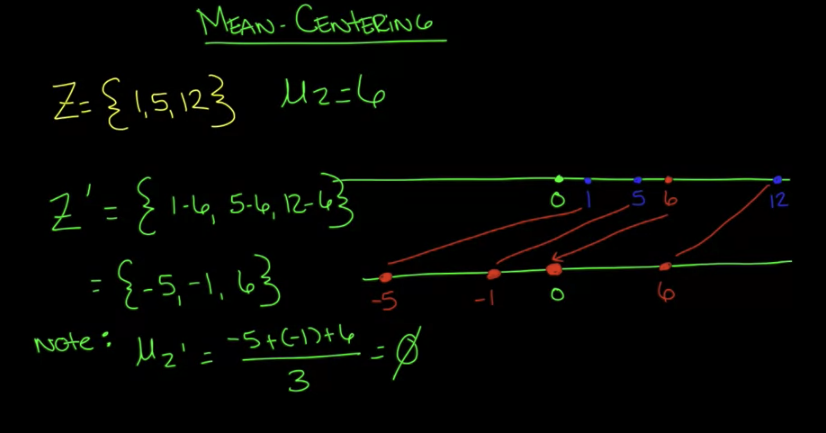 MEAN-CENTERING
Z = {1, 5, 12}   μz = 6
Z' = {1-6, 5-6, 12-6}
= {-5, -1, 6}
Note: μz' = (-5+(-1)+6)/3 = ∅
0 1 5 6 12
-5 -1 0 6